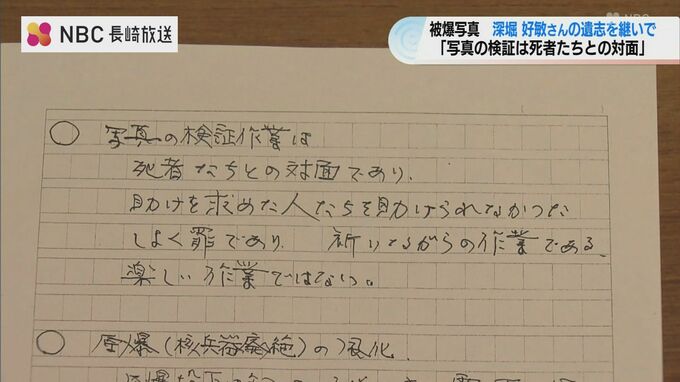 NBC 長崎放送
被爆写真 深堀 好敏さんの遺志を継いで
「写真の検証は死者たちとの対面」
○ 写真の検証作業は
死者たちとの対面であり、
助けを求めた人たちを助けられなかった
しょく罪であり 祈りながらの作業である、
楽しい作業ではない。
○ 原爆(核兵器廃絶)の風化、